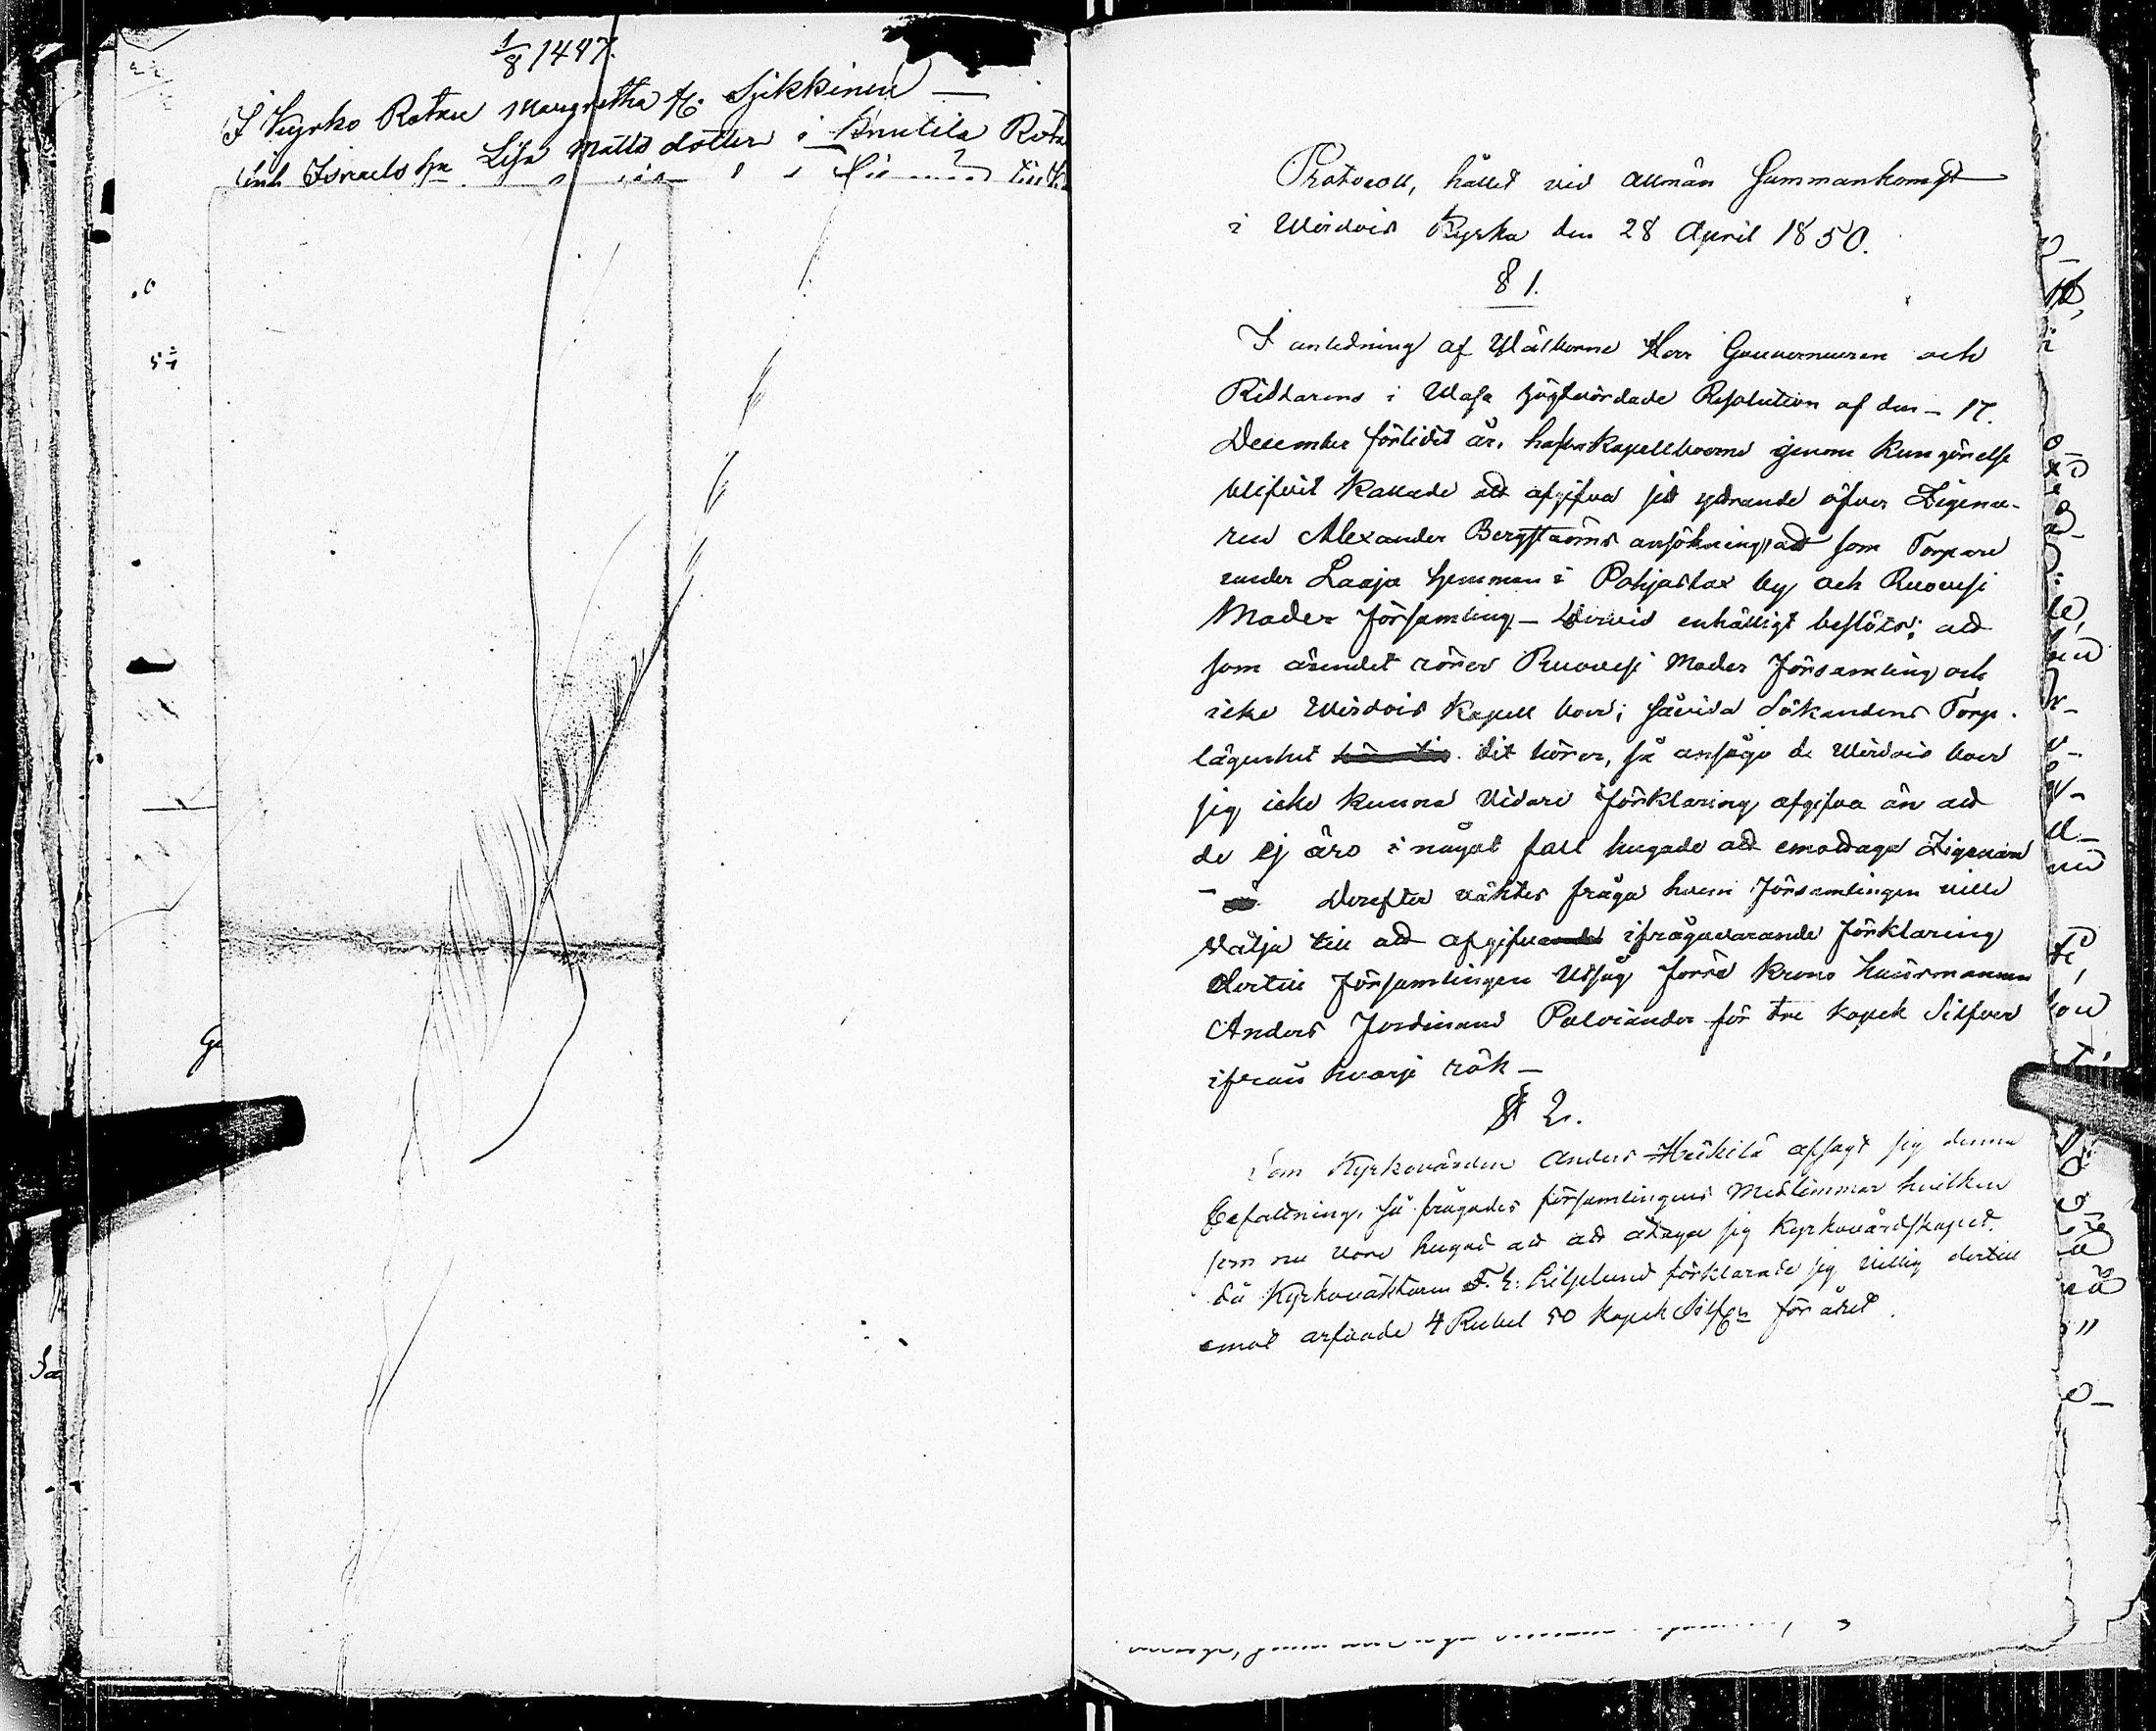 1/8 1447.
I Kyrko Rotan Margretha H. Sjikkinen —
Lisa Matts dotter i Knutila Rota
Israels
Protocoll, hållet vid allmän Sammankomst
i Wirdois Kyrka den 28 April 1850.
§ 1.
I anledning af Wälborne Herr Gouverneuren och
Riddarens i Wasa högtvördade Resolution af den – 17.
December förlidit år, hafva kapellboerne genom kungörelse
blifvit kallade att afgifva sitt yttrande öfver Zigena-
ren Alexander Bergströms ansökning, att som Torpare
under Laaja hemman i Pohjaslax by och Ruovesi
Moder församling – Dervid enhälligt beslöts; att
som ärendet rörer Ruovesi Moder Församling och
icke Wirdois Kapell boer; såvida Sökandens Torp-
lägenhet dit hörer, så ansågo de Wirdois boer
sig icke kunna vidare förklaring afgifva än att
de ej äro i något fall hugade att emottaga Zigenare
Derefter väktes fråga hvem Församlingen ville
välja till att afgifva ifrågavarande förklaring
dertill Församlingen utsåg förre Krono
Anders Ferdinand Palviander för tre kopek Silfver
ifrån hvarje rök –
§ 2.
Som Kyrkovärden Anders Heikilä afsagt sig denna
Befattning, så frågades församlingens Medlemmar hvilken
som nu vore hugad att att åtaga sig Kyrkovärdskapet.
då Kyrkoväktaren F. E. Liljelund förklarade sig villig dertill
emot arfvode 4 Rubel 50 kopek Silfver för året.